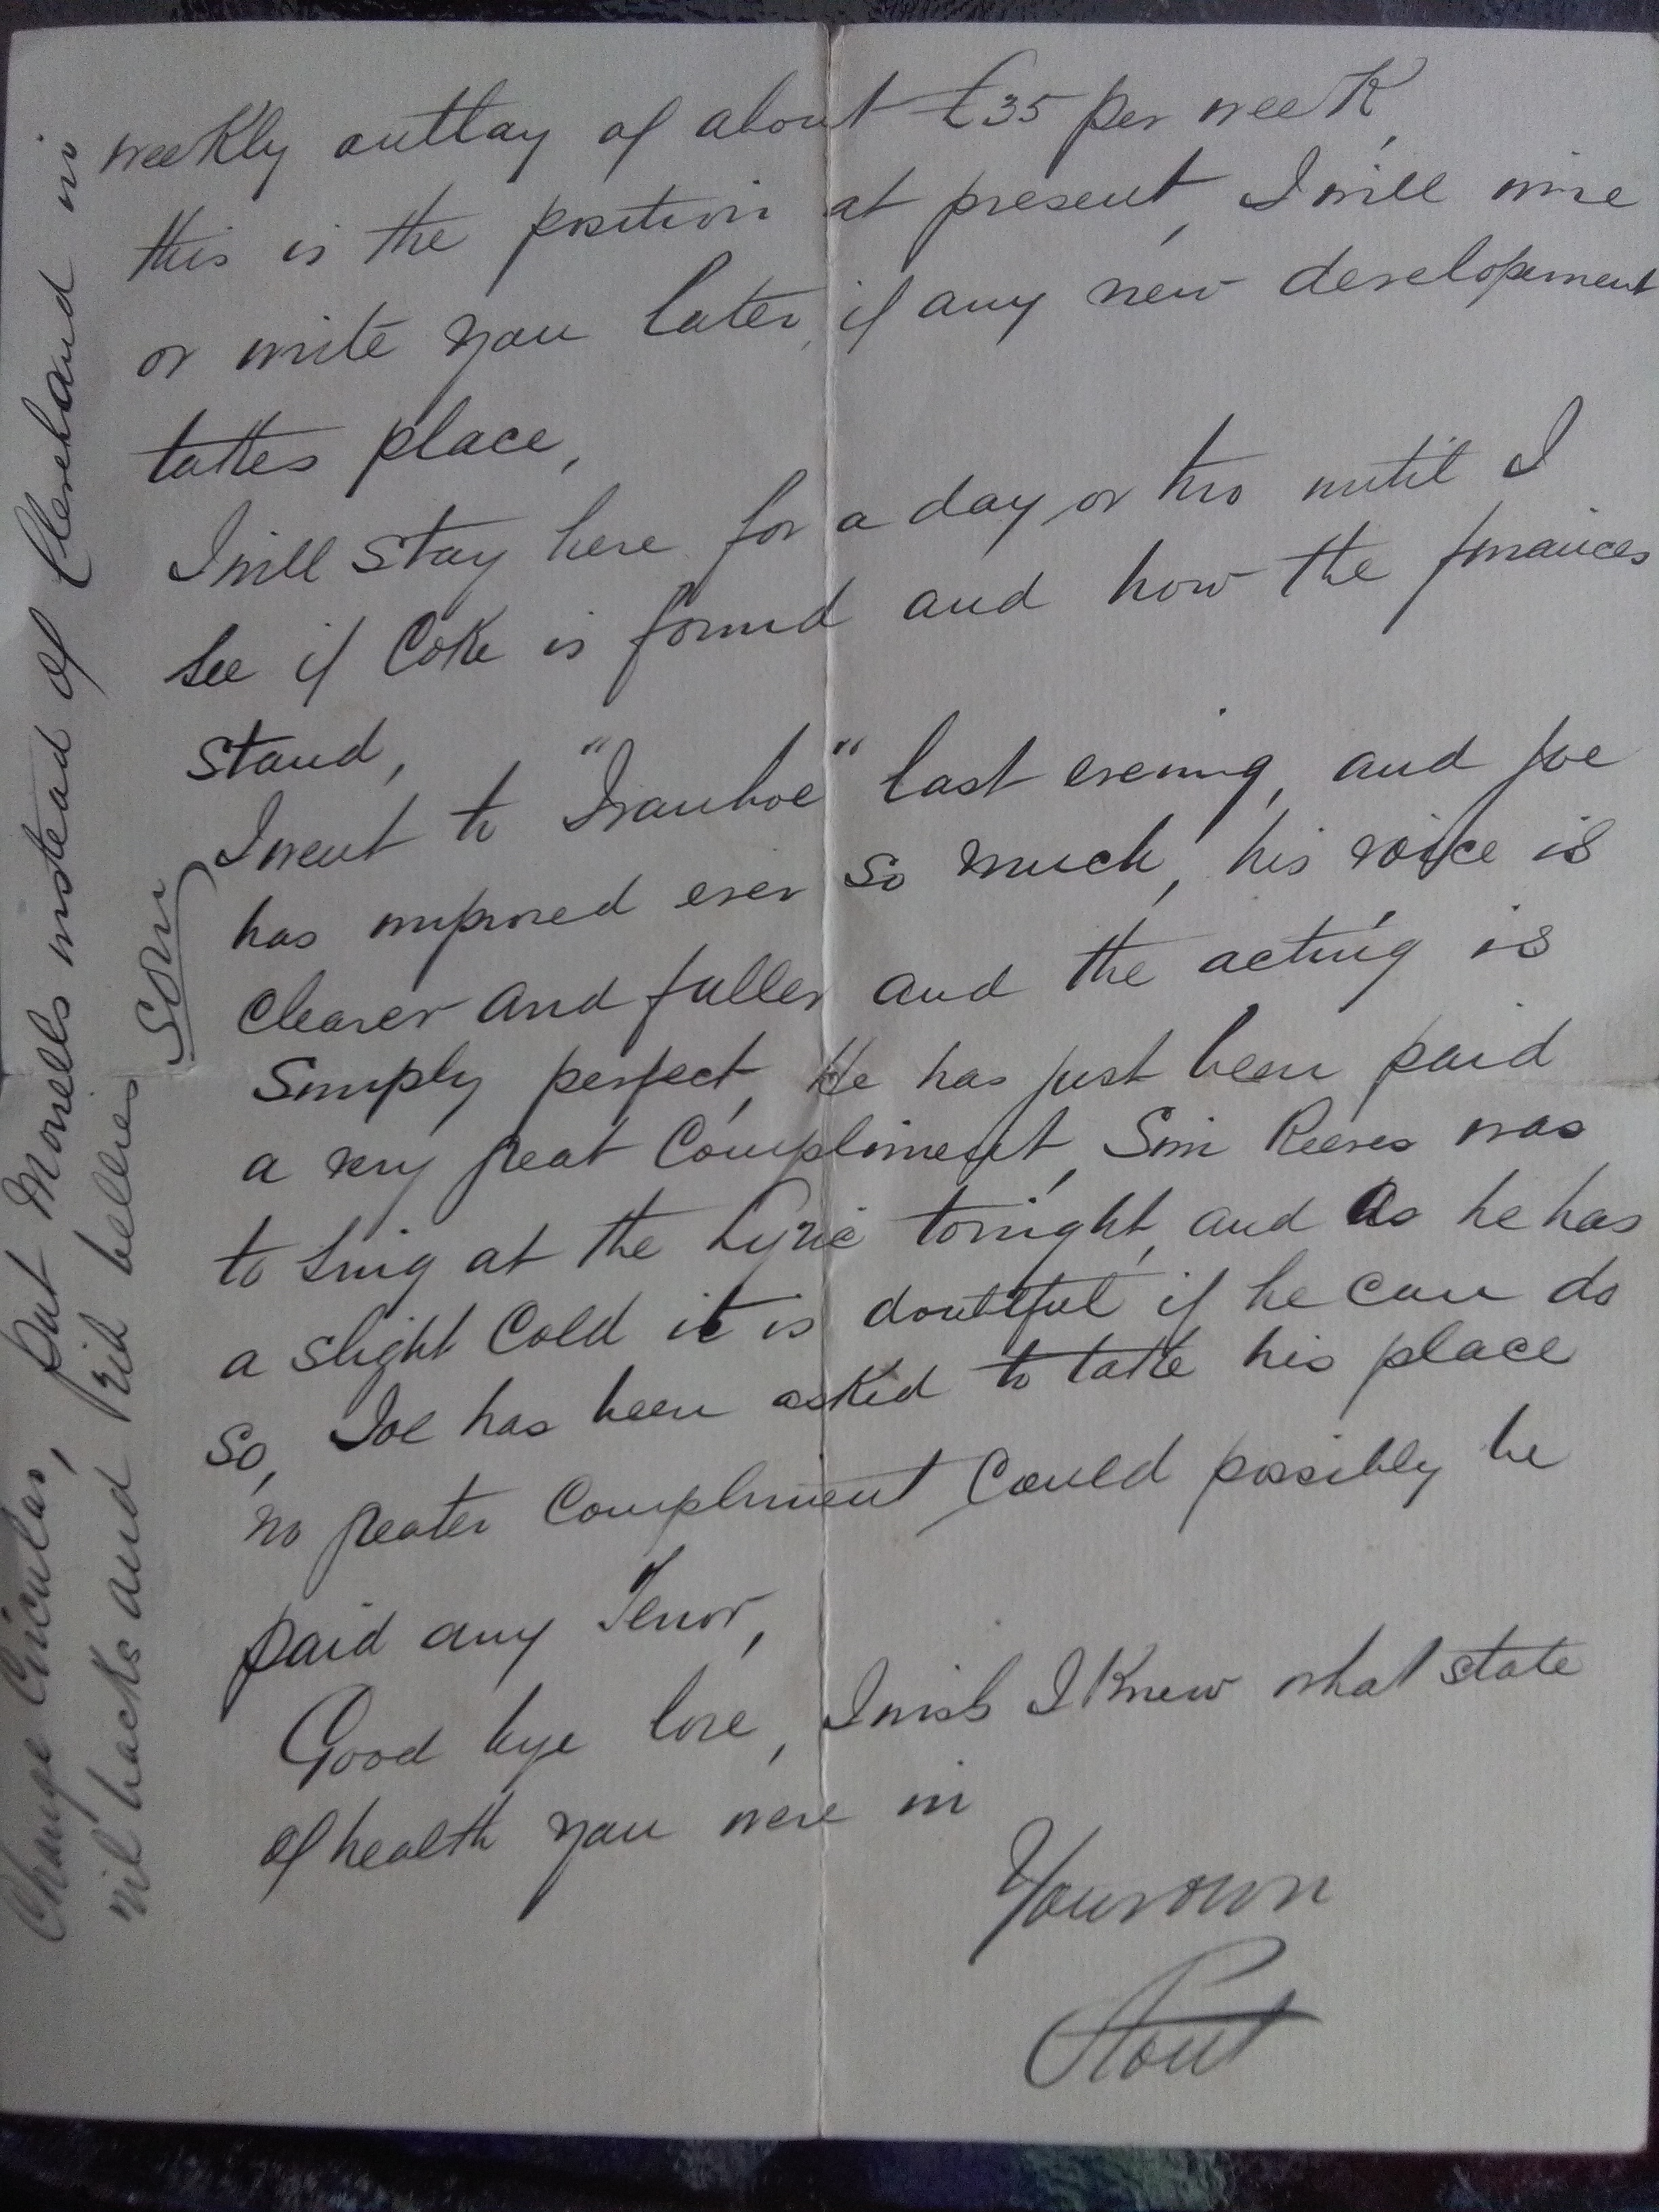 weekly outlay of about £35 per week,
this is the position at present, I will wire
or write you later, if any new developement
takes place,
I will stay here for a day or two until I
see if Coke is found and how the finances
stand,
I went to "Ivanhoe" last evening, and Joe
has improved ever so much, his voice is
clearer and fuller and the acting is
simply perfect, He has just been paid
a very great Compliment, Sim Reeves was
to sing at the Lyric tonight, and as he has
a slight Cold it is doubtful if he can do
so, Joe has been asked to take his place
no greater Compliment Could possibly be
paid any Tenor,
Good bye love, I wish I knew what state
of health you were in
Your own
Stout
Change Circular, put Morells instead of Cleveland in
backs and bellies Soon